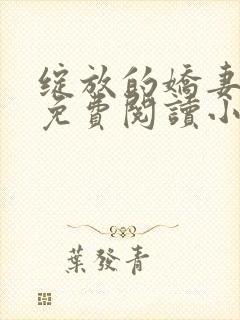 綻放的嬌妻
免費閱讀小
葉發青